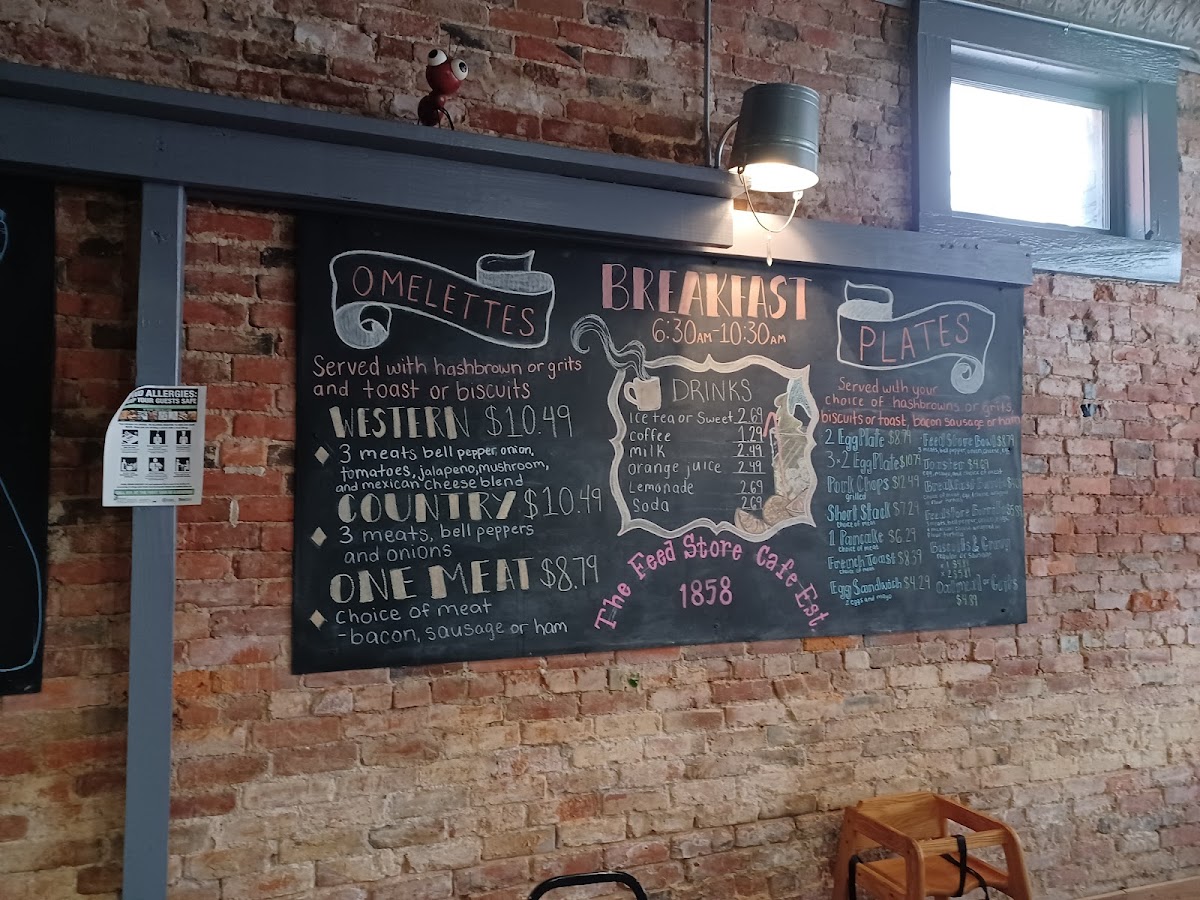 ALLERGIES:
YOUR GUESTS SAFE
OMELETTES
Served with hashbrown or grits
and toast or biscuits
WESTERN $10.49
3 meats bell pepper, onion,
tomatoes, jalapeno, mushroom,
and mexican cheese blend
COUNTRY $10.49
3 meats, bell peppers
and onions
ONE MEAT $8.79
Choice of meat
-bacon, sausage or ham
BREAKFAST
6:30AM-10:30AM
DRINKS
Ice tea or Sweet 2.69
coffee 1.29
milk 2.49
orange juice 2.49
Lemonade 2.69
Soda 2.69
The Feed Store Cafe-Est
1858
PLATES
Served with your
choice of hashbrowns or grits,
biscuits or toast, bacon sausage or ham
2 Egg Plate $8.79
3×2 Egg Plate $10.79
Pork Chops $12.49
grilled
Short Stack $7.29
choice of meat
1 Pancake $6.29
choice of meat
French Toast $8.39
choice of meat
Egg Sandwich $4.29
2 eggs and mayo
Feed Store Bowl $8.79
Biscuits & Gravy
Oatmeal or Grits
$4.89